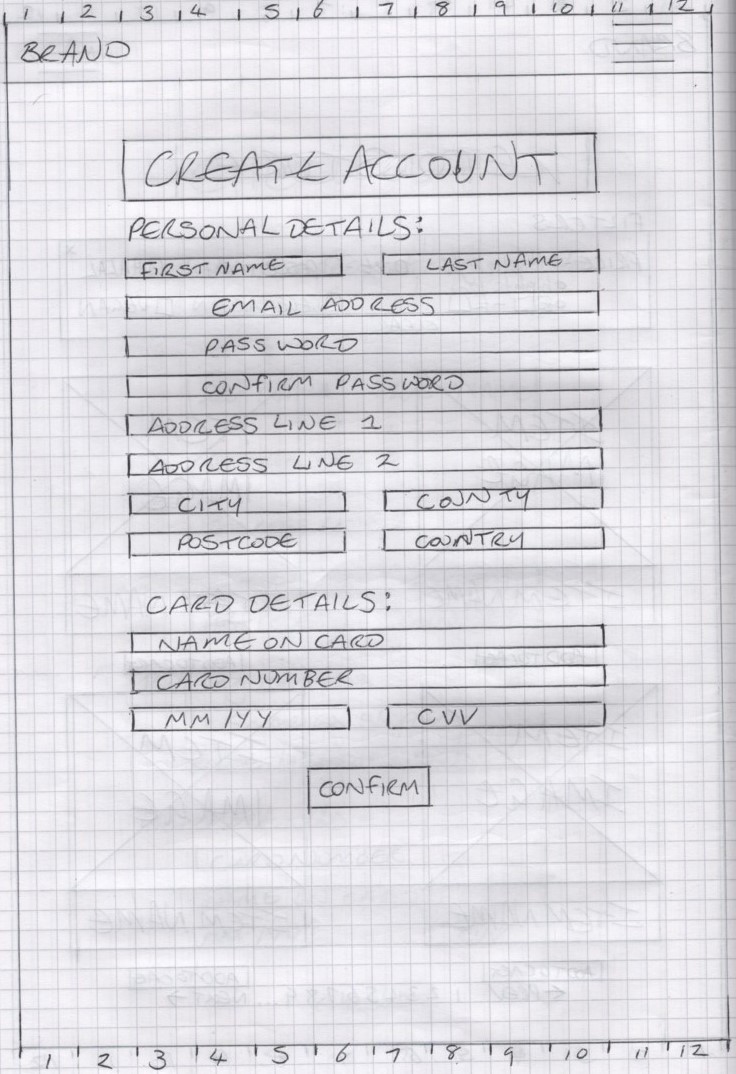 1 2 3 4 5 6 7 8 9 10 11 12
BRAND
CREATE ACCOUNT
PERSONAL DETAILS:
FIRST NAME LAST NAME
EMAIL ADDRESS
PASSWORD
CONFIRM PASSWORD
ADDRESS LINE 1
ADDRESS LINE 2
CITY COUNTY
POSTCODE COUNTRY
CARD DETAILS:
NAME ON CARD
CARD NUMBER
MM/YY CVV
CONFIRM
1 2 3 4 5 6 7 8 9 10 11 12